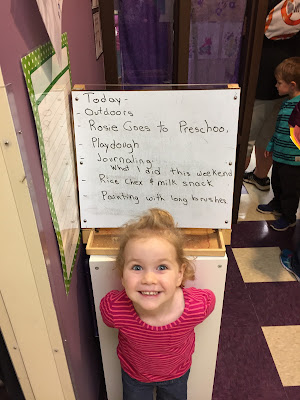 Today -
- Outdoors
- Rosie Goes to Preschoo,
- Playdough
- Journaling
What I did this weekend
- Rice Chex & milk snack
- Painting with long brushes